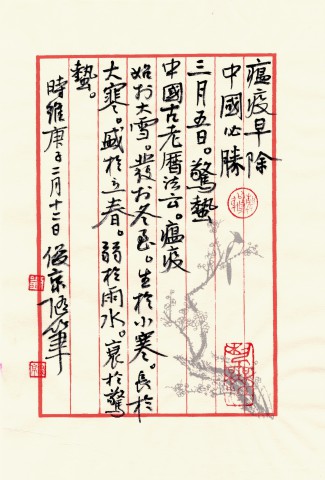 瘟疫早除
中國必勝
三月五日。驚蟄
中國古老曆法云。瘟疫
始於大雪。發於冬至。生於小寒。長於
大寒。盛於立春。弱於雨水。衰於驚
蟄。
時維庚子二月十二日